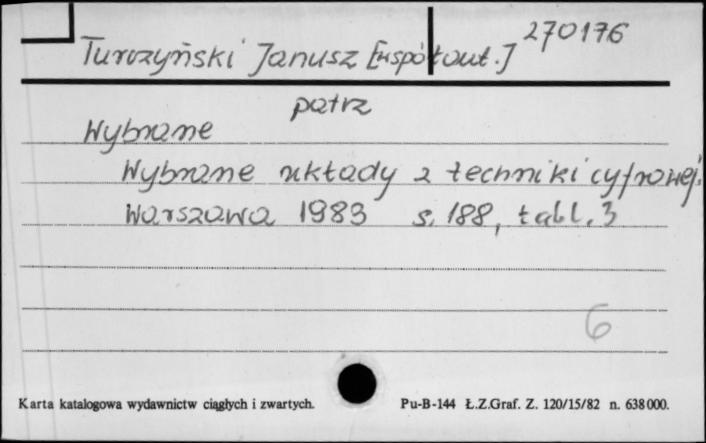 270176
Turczyński Janusz [współaut.]
patrz
Wybrane
Wybrane układy z techniki cyfrowej.
Warszawa 1983 s. 188, tabl. 3
6
Karta katalogowa wydawnictw ciągłych i zwartych. Pu-B-144 Ł.Z.Graf. Z. 120/15/82 n. 638000.